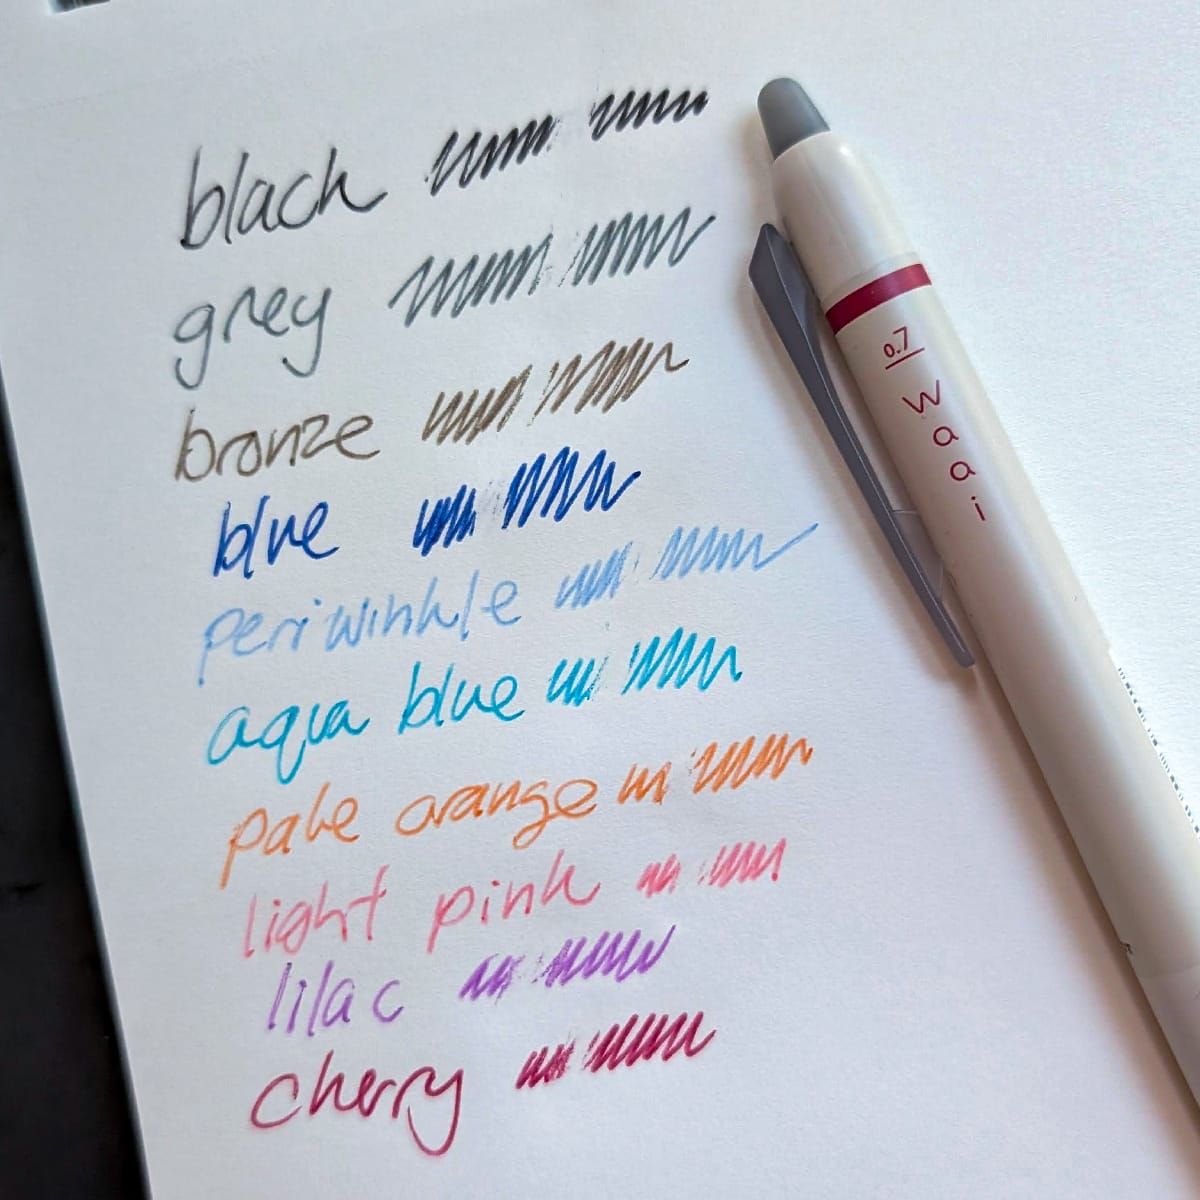 black
grey
bronze
blue
periwinkle
aqua blue
pale orange
light pink
lilac
cherry
0.7
waai